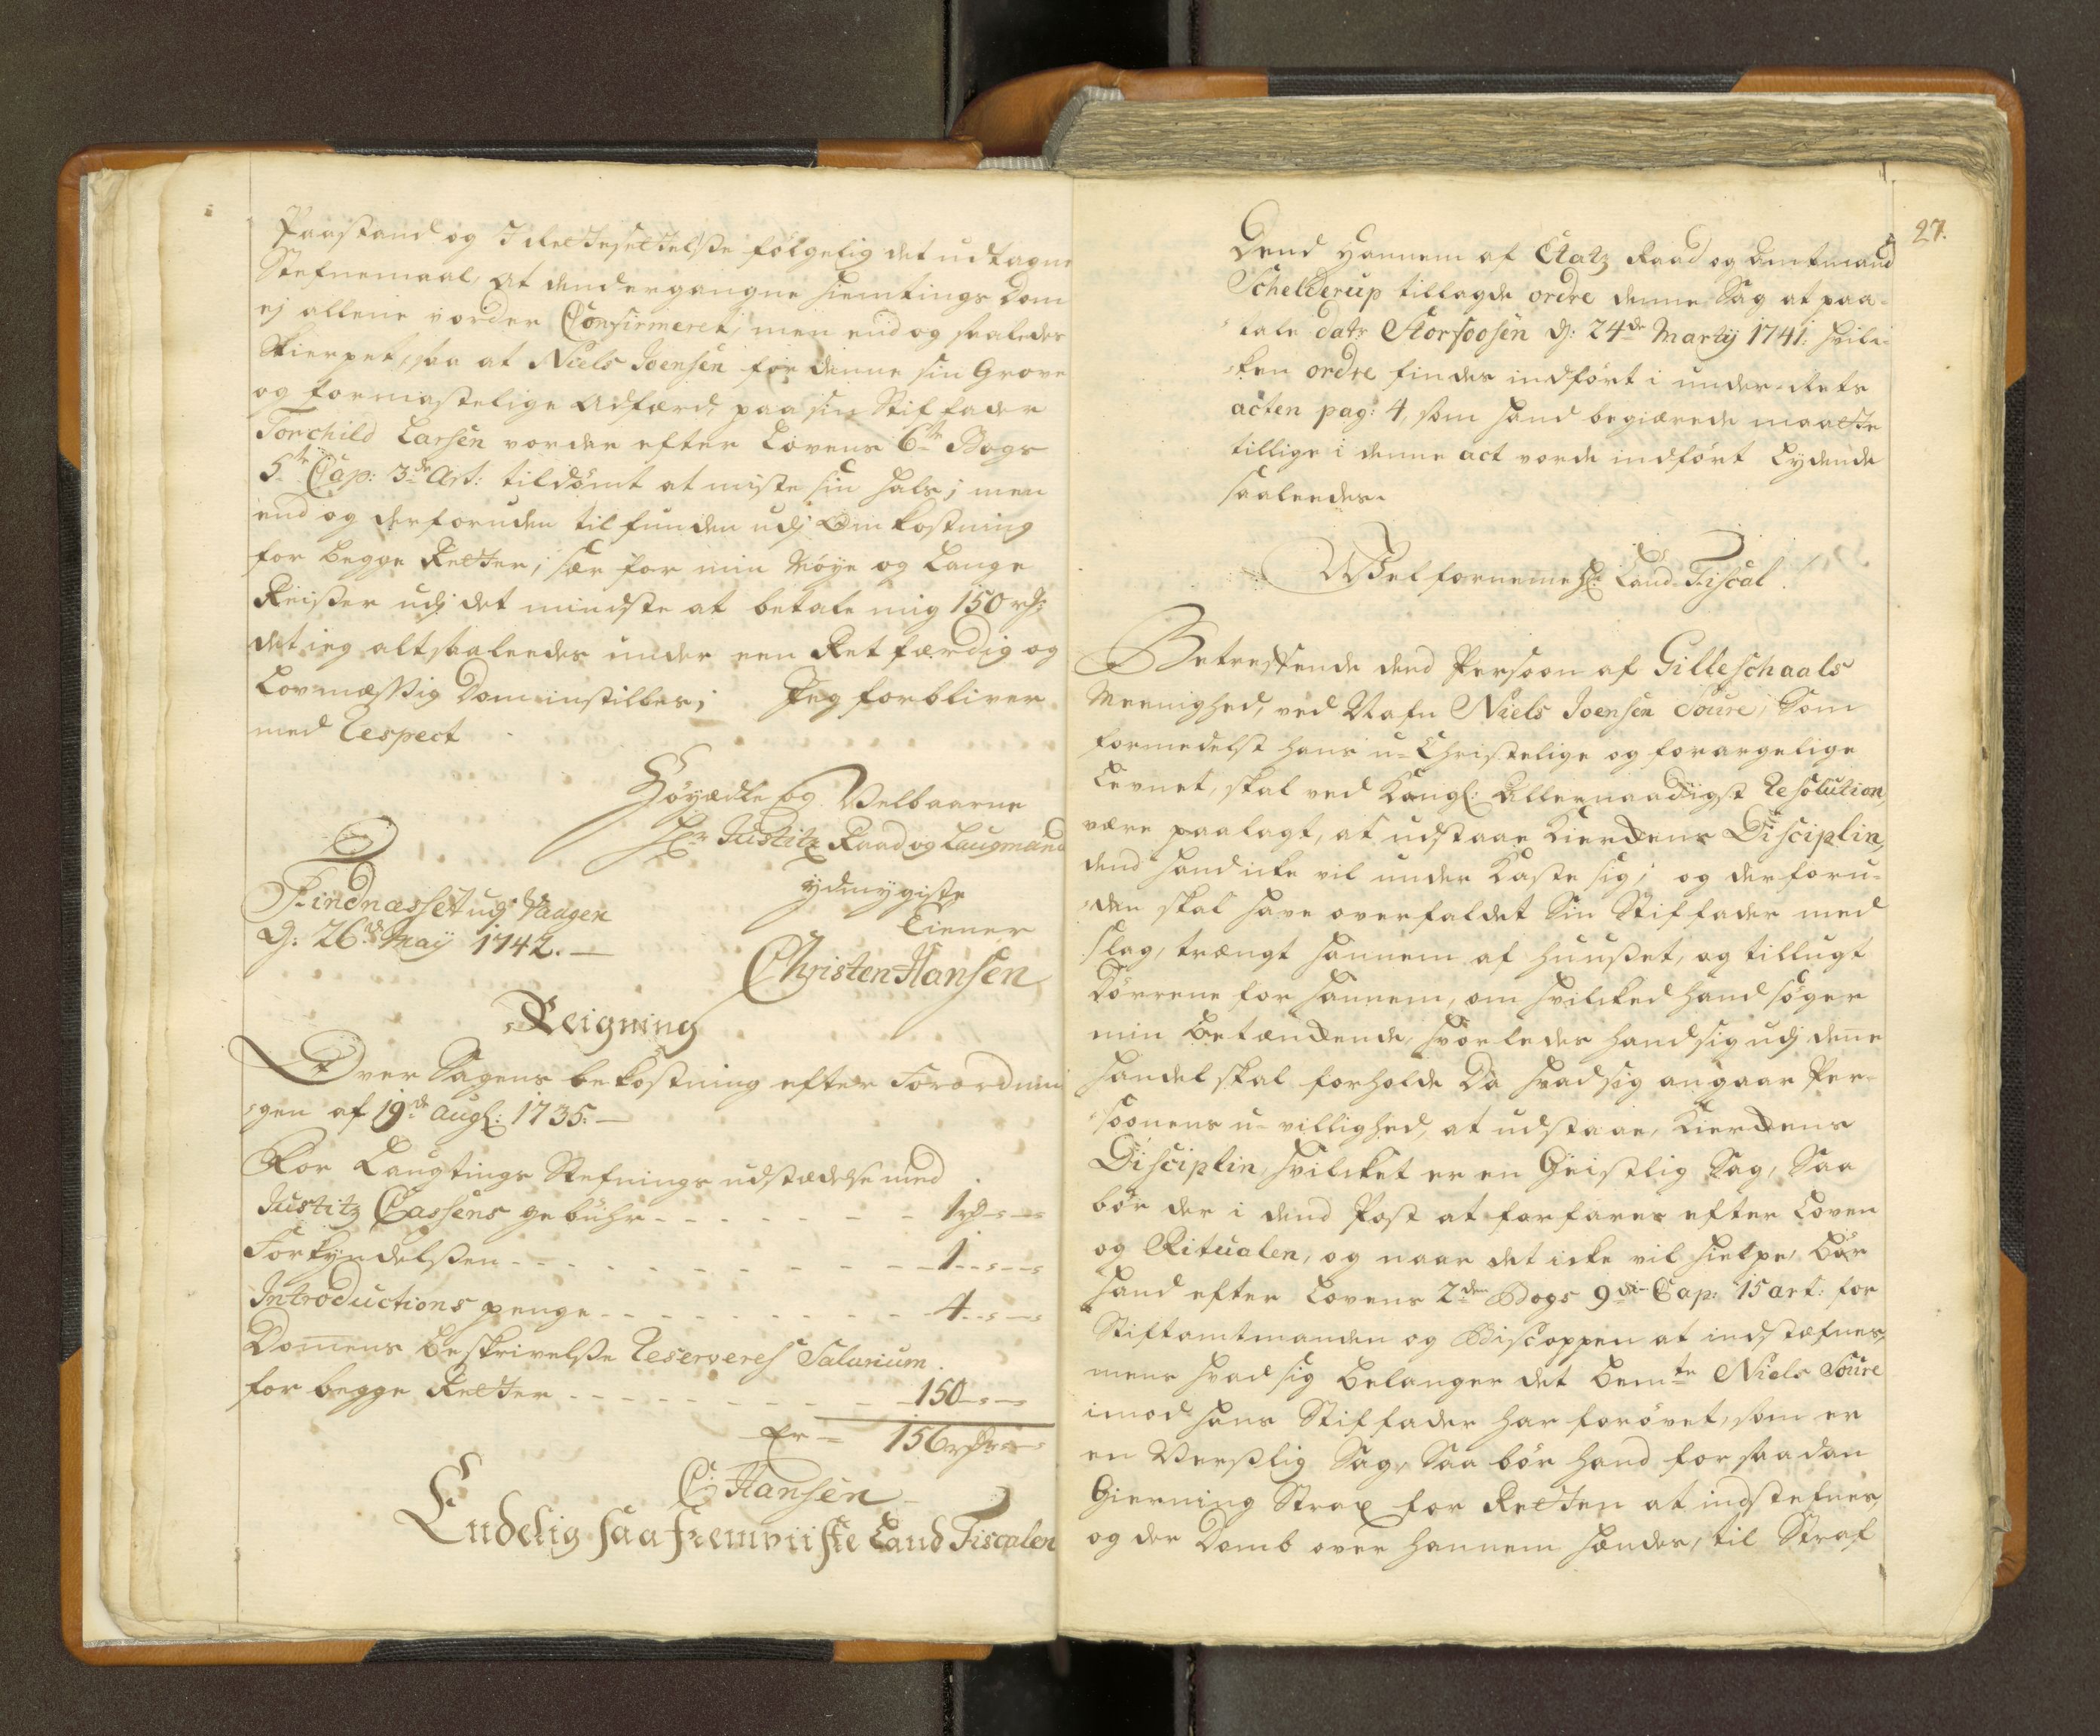 Paastand og I Rettesettelsse følgelig det udtagne
Stefnemaal, at dend ergangne hiemtings Dom
ej allene vorder Confirmeret, men end og saaledes
Skierpet, saa at Niels Joensen for denne sin Grove
og formastelige Adfærd, paa sin Stiffader
Torchild Larsen vorder efter Lovens 6te Bogs
5te Cap: 3de Art: tildømt at miste sin hals; men
end og derforuden tilfunden udj Omkostning
for begge Retter, sær for min Møye og Lange
Reisser udj det mindste at betale mig 150 rd:
det ieg alt saaleedes under een Retfærdig og
Lovmæssig Dom instilles; Jeg forbliver
med Respect
Høyædle og Velbaarne
Hr Justitz Raad og Laugmand
ydmygiste
Tiener
Christen Hansen
Findnæsset udj Vaagen
D: 26de Maÿ 1742.
Reigning
Over Sagens bekostning efter Forordnin
gen af 19de Aug: 1735.
For Laugtings Stefnings udstædelse med
Justitz Cassens gebühr - - - 1 rd - -
Forkyndelssen - - - 1 - -
Introductions penge - - - 4 - -
Domens Beskrivelsse Reserveres Salarium
for begge Retter - - - 150 - -
Er - 156 rdr - -
C: Hansen
Endelig saa fremviiste Land Fiscalen
27.
Dend hannem af Etatz Raad og Amtmand
Schelderup tillagde ordre denne Sag at paa-
tale dats Storfoosen d: 24de Martÿ 1741: hvil-
ken ordre findes indført i under-Rets
acten pag: 4, som hand begiærede maatte
tillige i denne act vorde indført Lydende
saaleedes.
WEelfornemme Hr Land-Fiscal!
Betreffende dend Persoon af Gilleschaals
Meenighed, ved Nafn Niels Joensen Soure, Som
formedelst hans u-Christelige og forargelige
Levnet, skal ved Kongl: Allernaadigst Resolution,
være paalagt, at udstaae Kierckens Disciplin,
dend hand icke vil under Kaste sig; og derforu-
den skal have overfaldet Sin Stiffader med
slag, trængt hannem af huusset, og tillugt
Dørrene for hannem, om hvilcked hand søger
min Betænckende, hvorledes hand sig udj denne
handel skal forholde Da hvad sig angaar Per-
soonens u-villighed, at udstaae, Kierckens
Disciplin, hvilcket er en Geistlig Sag, Saa
bør der i dend Post at forfares efter Loven
og Ritualen, og naar det icke vil hielpe, bør
hand efter Lovens 2den Bogs 9de Cap: 15 art: for
Stiftamtmanden og Biscoppen at indstæfnes,
mens hvad sig belanger det bemte Niels Soure
imod hans Stiffader har forøvet, som er
en Versslig Sag, Saa bør hand for saadan
Gierning Strax for Retten at indstefnes,
og der Domb over hannem hændes, til Straf